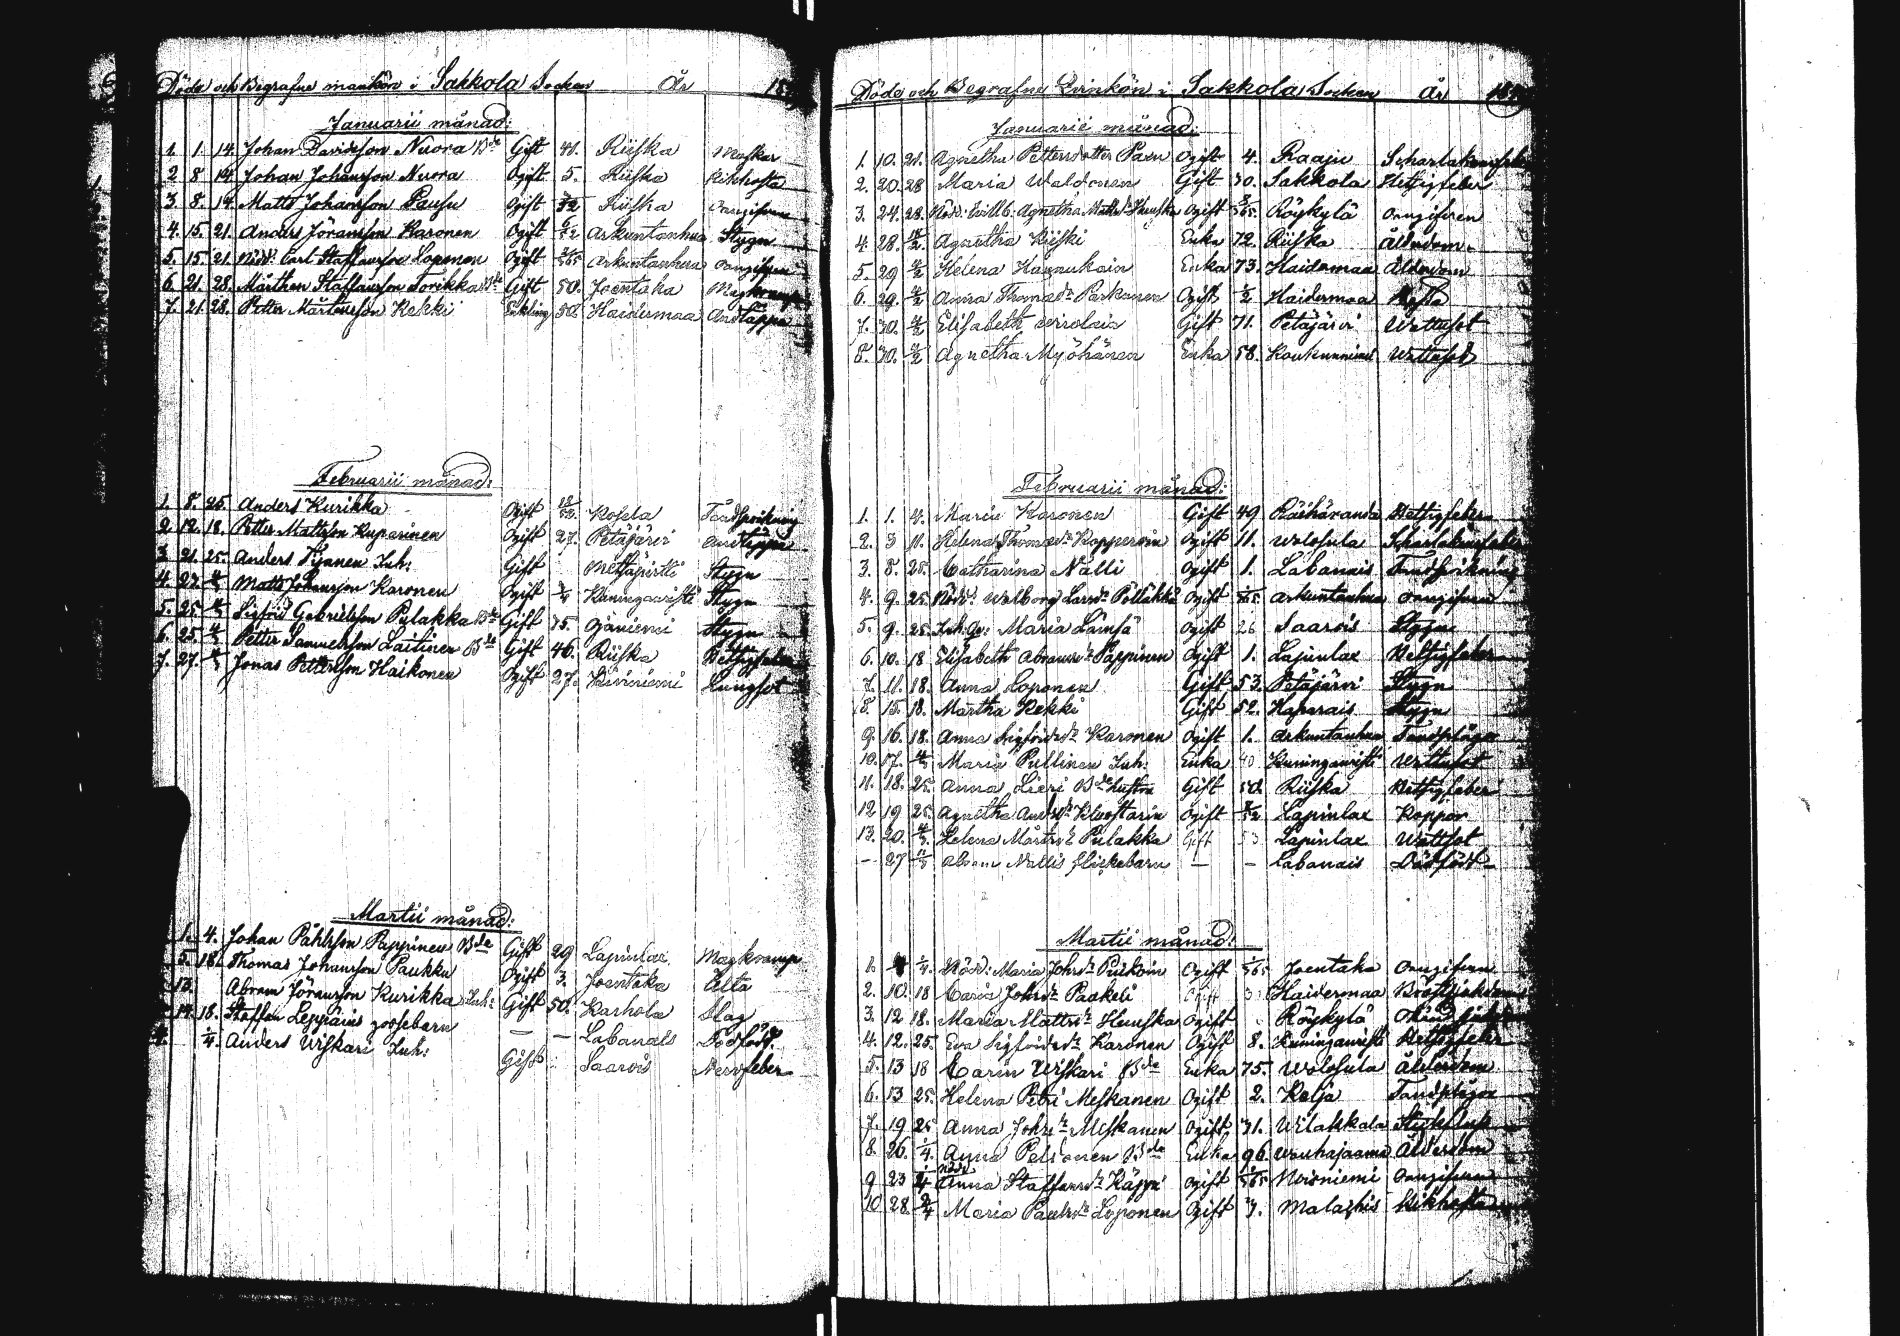 Döde och Begrafne mankön i Sakkola Socken År
Januarii månad:
1. 1. 14. Johan Davidsson Nuora Bde Gift 41. Riiska
2 8 14. Johan Johansson Nuora Ogift 5. Riiska Kikhosta
3. 8. 14. Matts Johansson Pausu Ogift Riiska Oangifven
4. 15. 21. Anders Jöransson Karonen Ogift 6/52 Arkuntanhua Stygn
5. 15 21. Nöd: Carl Staffansson Loponen Ogift Arkuntanhua Oangifven
6. 21. 28. Mårthen Staffansson Torikka Gift 50. Joentaka Magkramp
7. 21 28. Petter Mårtensson Kekki Enkling 50. Haidermaa Andtäppa
Februarii månad:
1. 8. 25. Anders Kurikka Ogift Kosela Tandsprikning
2. 12. 18. Petter Mattsson Kuparinen Ogift 27. Petäjärvi Andtäppa
3. 21. 25. Anders Tijanen Inh: Gift Mettäpirtti Stygn
4. 27. Matts Johansson Karonen Ogift Kuningaanristi Stygn
5. 25. Sigfrid Gabrielsson Pulakka Bde Gift 75. Ojaniemi Stygn
6. 25 Petter Samuelsson Laitinen Bde Gift 46. Riiska Hettsigfeber
7. 27. Jonas Pettersson Haikonen Ogift 27. Kiviniemi Lungsot
Martii månad:
1. 4. Johan Påhlsson Pappinen Bde Gift 29 Lapinlax Magkramp
5. 18. Thomas Johansson Paukku Ogift 3. Joentaka Älta
13. Abram Jöransson Kurikka Inh: Gift 50. Karhola Slag
14. 18. Staffan Leppäins gossebarn — — Labanais Dödfödt.
1/4. Anders Wiskari Inh: Gift Saarois Nervfeber
Döde och Begrafne Qvinkön i Sakkola Socken År
Januarii månad:
1. 10. 21. Agnetha Pettersdotter Paen Ogift 4. Raaju Scharlakansfeber
2. 20. 28 Maria Waldonen Gift 30. Sakkola Hetsigfeber
3. 24. 28. Nöd: Agnetha Matts Huuska Ogift Röykylä Oangifven
4 28. Agnetha Kiiski Enka 72. Riiska Ålderdom
5. 29 4/2 Helena Hannukain Enka 73. Haidermaa Ålderdom
6. 29. 4/2 Anna Thomasdr Parkanen Ogift 1/2 Haidermaa Hosta
7. 30. 4/2 Elisabeth Wirolain Gift 71. Petäjärvi Wattusot
8. 30. 4/2 Agnetha Myöhänen Enka 58. Koukunniemi Wattusot
Februarii månad:
1. 1. 4. Maria Karonen Gift 49 Räihäranda Hettigfeber
2. 3 11. Helena Thomasdr Kopperoin Ogift 11. Wolosula Scharlakansfeber
3. 8. 25. Catharina Nalli Ogift 1. Labanais Tandsprikning
4. 9. 25. Nöd: Walborg Larsdr Pöllähkä Ogift Arkuntanhua Oangifven
5. 9. 25. Inh: Qv: Maria Lämsä Ogift 26 Saarois Stygn
6. 10. 18 Elisabeth Abramsdr Pappinen Ogift 1. Lapinlax Hettigfeber
7. 11. 18. Anna Loponen Gift 53. Petäjärvi Stygn
8. 15. 18. Martha Kekki Gift 52. Haparais Stygn
9. 16. 18. Anna Sigfridsdr Karonen Ogift 1. Arkuntanhua Tandplågor
10. 17. Maria Pullinen Inh: Enka 40 Kuninganristi Wattusot
11. 18. 25. Anna Lieri Bdehustru Gift 50. Riiska Hettigfeber
12. 19 25. Agnetha Ogift Lapinlax Koppor
13. 20. Helena Mårtensdr Pulakka Gift 53 Lapinlax Wattsot
— 27 Abram Nallis flickebarn — — Labanais Dödfödt
Martii månad:
1. 4 1/4. Nöd: Maria Johsdr Puikoin Ogift Joentaka Oangifven
2. 10. 18 Carin Johsdr Paakeli Ogift 3 Haidermaa Bröstsjukdom
3. 12 18. Maria Mattsdr Huuska Ogift Röykylä
4. 12. 25. Eva Sigfridsdr Karonen Ogift 8. Kuninganristi Hettigfeber
5. 13 18 Carin Wiskari Bde Enka 75. Wolosula Ålderdom.
6. 13 25. Helena Petri Meskanen Ogift 2. Kelja Tandplågor
7. 19 25 Anna Johsdr Meskanen Ogift 31. Wilakkala
8. 26. 1/4. Anna Peltonen Bde Enka 96. Wanhajaama Ålderdom
9 23 1/4 Nöd: Anna Staffansdr Käppi Ogift Noisniemi Oangifven
10 28. 2/4 Maria Paulsdr Loponen Ogift 3. Malachis Kikhosta